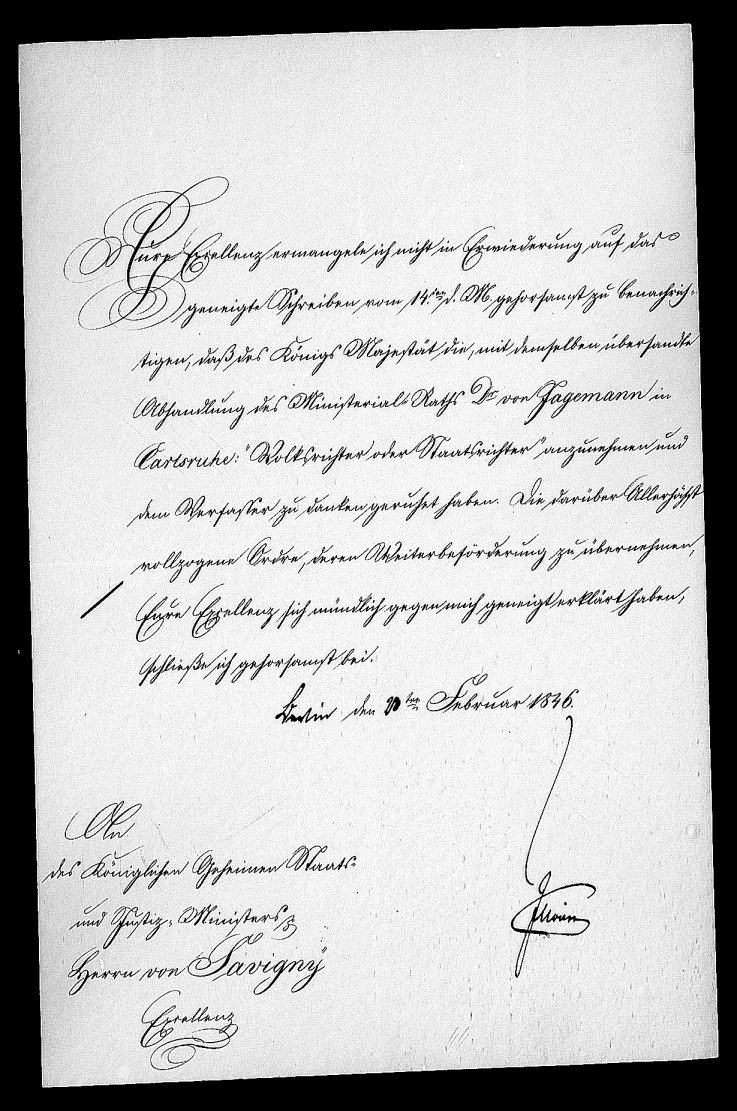 Eure Excellenz ermangele ich nicht in Erwiederung auf das
geneigte Schreiben vom 14.ten d. M. gehorsamst zu benachrich-
tigen, daß des Königs Majestät die, mit demselben übersandte
Abhandlung des Ministerial-Raths Dr von Jagemann in
Carlsruhe: "Volksrichter oder Staatsrichter" anzunehmen und
dem Verfasser zu danken geruhet haben. Die darüber Allerhöchst
vollzogene Ordre, deren Weiterbeförderung zu übernehmen,
Eure Excellenz sich mündlich gegen mich geneigt erklärt haben,
schließe ich gehorsamst bei.
Berlin den ten Februar 1846.
An
des Königlichen Geheimen Staats-
und Justiz-Ministers
Herrn von Savigny
Excellenz